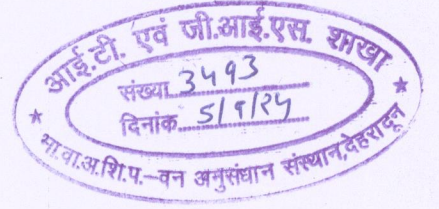 आई.टी. एवं जी.आई.एस. शाखा
संख्या 3493
दिनांक 5/9/24
भा.वा.अ.शि.प.–वन अनुसंधान संस्थान, देहरादून